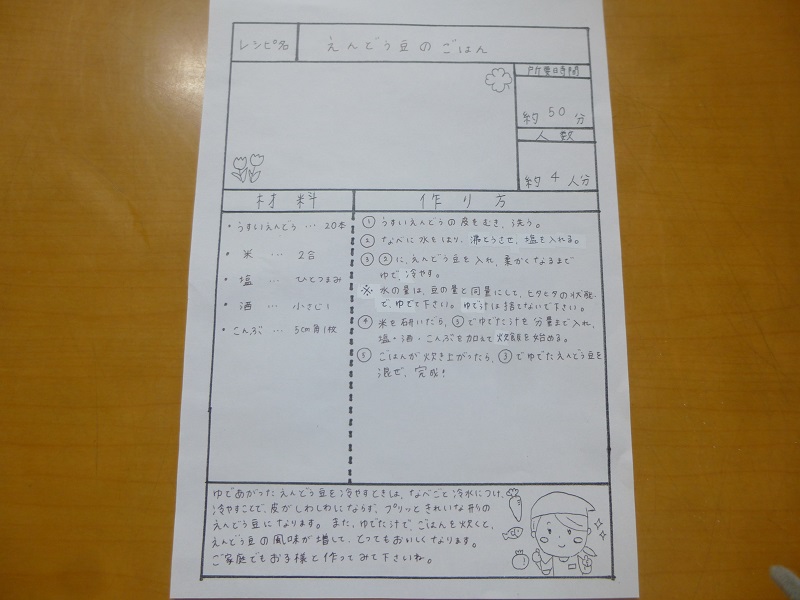 レシピ名
えんどう豆のごはん
所要時間
約 50 分
人数
約 4 人分
材料
・うすいえんどう … 20本
・米 … 2合
・塩 … ひとつまみ
・酒 … 小さじ1
・こんぶ … 5cm角1枚
作り方
① うすいえんどうの皮をむき、洗う。
② なべに水をはり、沸とうさせ、塩を入れる。
③ ②に、えんどう豆を入れ、柔かくなるまで
ゆで、冷やす。
※ 水の量は、豆の量と同量にして、ヒタヒタの状態
で、ゆでて下さい。ゆで汁は捨てないで下さい。
④ 米を研いだら、③でゆでた汁を分量まで入れ、
塩・酒・こんぶを加えて炊飯を始める。
⑤ ごはんが炊き上がったら、③でゆでたえんどう豆を
混ぜ、完成!
ゆであがったえんどう豆を冷やすときは、なべごと冷水につけ、
冷やすことで、皮がしわしわにならず、プリッときれいな形の
えんどう豆になります。また、ゆでた汁で、ごはんを炊くと、
えんどう豆の風味が増して、とってもおいしくなります。
ご家庭でもお子様と作ってみて下さいね。